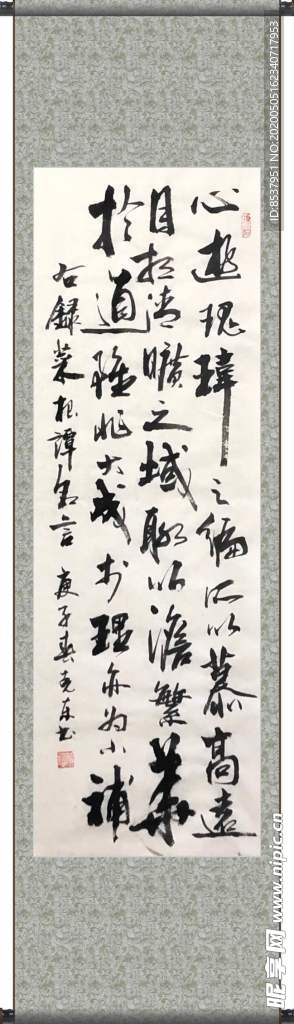 心游瑰玮之编所以慕高远
目想清旷之域聊以澹繁华
於道雖非大成於理亦为小補
右録菜根譚名言 庚子春克东书
ID:8537951 NO:20200505162340717953
昵享网 www.nipic.cn